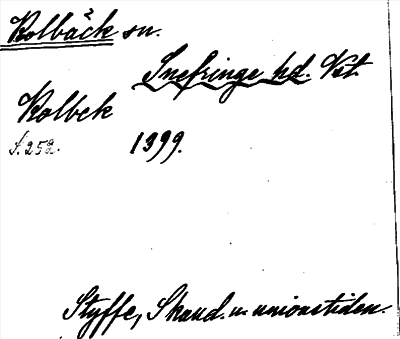 Kolbäck sn.
Snefringe hd. Vst.
Kolbek
s. 252. 1399.
Styffe, Skand. u. unionstiden.